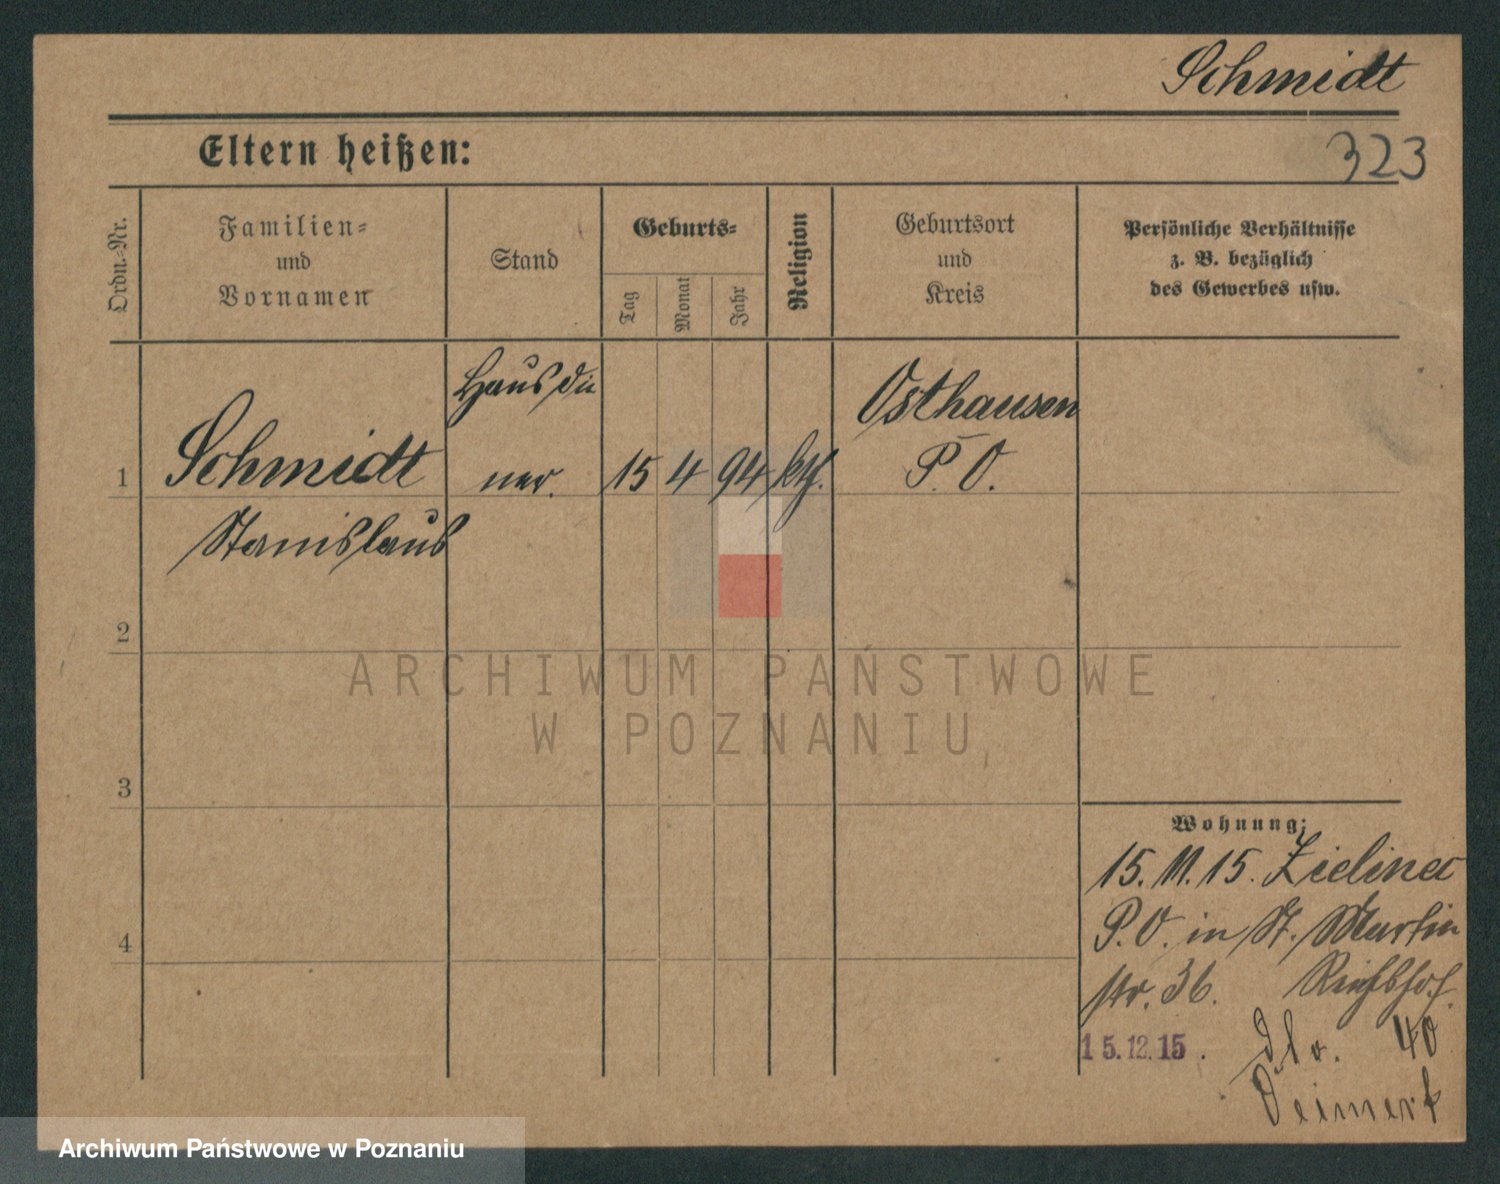 Schmidt
Eltern heißen:
323
Ordn.-Nr.
Familien-
und
Vornamen
Stand
Geburts-
Tag
Monat
Jahr
Religion
Geburtsort
und
Kreis
Persönliche Verhältnisse
z. B. bezüglich
des Gewerbes usw.
1
Schmidt
Stanislaus
Hausdie
ner.
15 4 94 kth.
Osthausen
P. O.
2
3
4
ARCHIWUM PAŃSTWOWE
W POZNANIU
Wohnung:
15. 11. 15. Zielinec
P. O. in St. Martin
str. 36. Reichshof.
15.12.15. 40
Archiwum Państwowe w Poznaniu